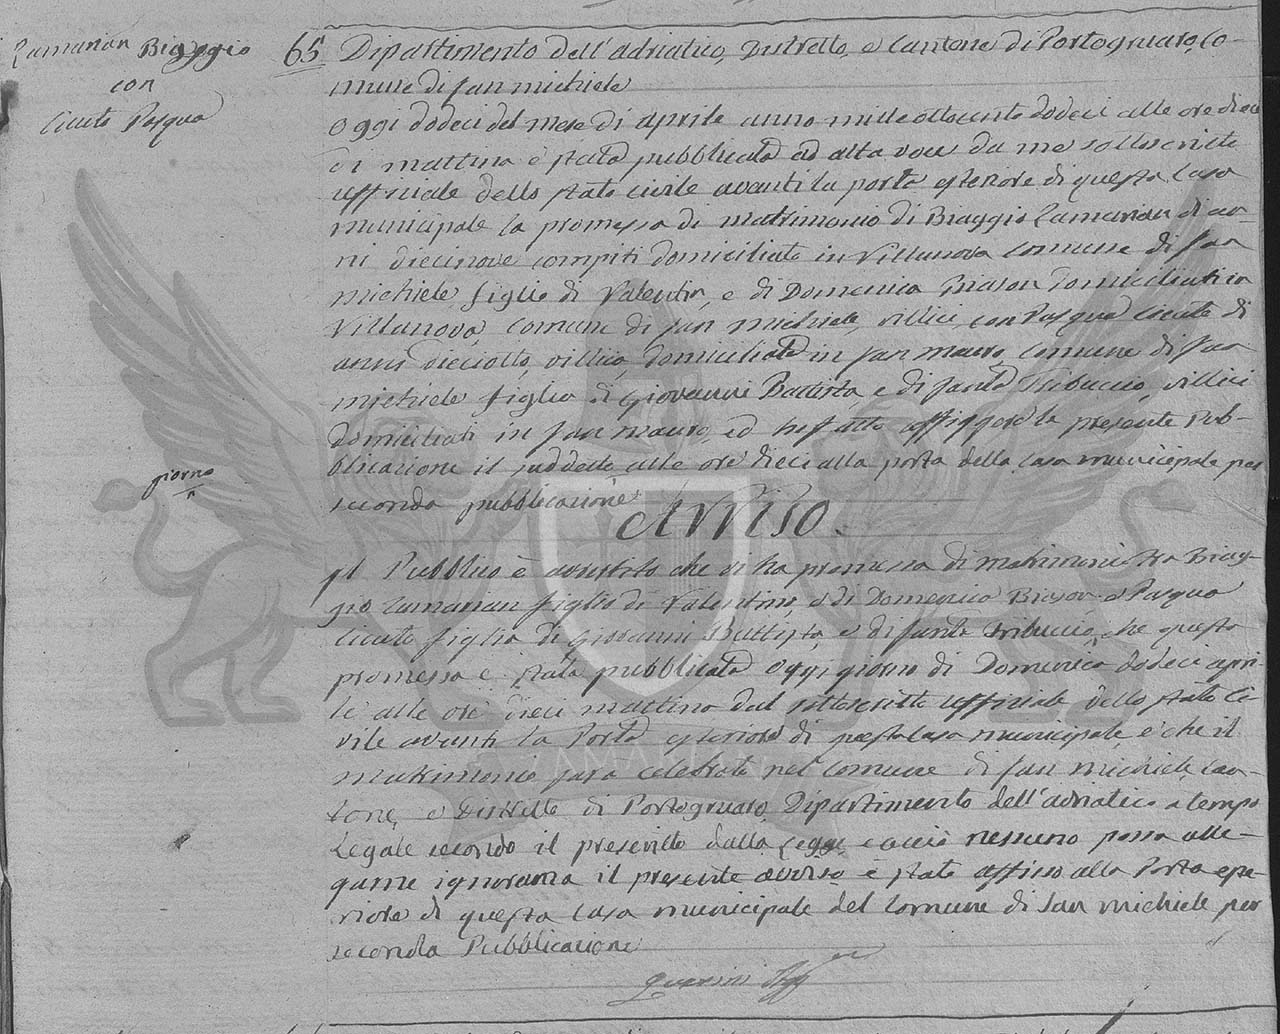 Zamarian Biaggio
con
Cicuto Pasqua
65 Dipartimento dell'adriatico, Distretto, e Cantone di Portogruaro, Co-
mune di San Michiele
Oggi dodeci del mese di aprile anno mille ottocento dodeci alle ore dieci
di mattina è stata pubblicata ad alta voce da me sottoscritto
uffiziale dello stato civile avanti la porta esteriore di questa Casa
municipale la promessa di matrimonio di Biaggio Zamarian di an-
ni diecinove compiti domiciliato in Villanova comune di San
Michiele, figlio di Valentin, e di Domenica Biason domiciliati in
Villanova, comune di San Michiele, villici, con Pasqua Cicuto di
anni dieciotto, villica, domiciliata in San Mauro, comune di San
Michiele figlia di Giovanni Battista, e di Santa Tribuccio, villici
domiciliati in San Mauro, ed ho fatto affiggere la presente Pub-
blicazione il suddetto alle ore dieci alla porta della Casa municipale per
giorno
seconda pubblicazione
Avviso.
Il Pubblico è avertito che vi ha promessa di matrimonio tra Biag-
gio Zamarian figlio di Valentino, e di Domenica Biason e Pasqua
Cicuto figlia di Giovanni Battista, e di Santa Tribuccio, che questa
promessa è stata pubblicata oggi giorno di Domenica dodeci apri-
le alle ore dieci mattina dal sottoscritto uffiziale dello stato Ci-
vile avanti la Porta esteriore di questa Casa municipale, e che il
matrimonio sarà celebrato nel Comune di San Michiele, Can-
tone, e Distretto di Portogruaro, Dipartimento dell'adriatico a tempo
Legale secondo il prescritto dalla Legge e acciò nessuno possa alle-
garne ignoranza il presente avviso è stato affisso alla Porta este-
riore di questa Casa municipale del Comune di San Michiele per
seconda Pubblicazione
Querini